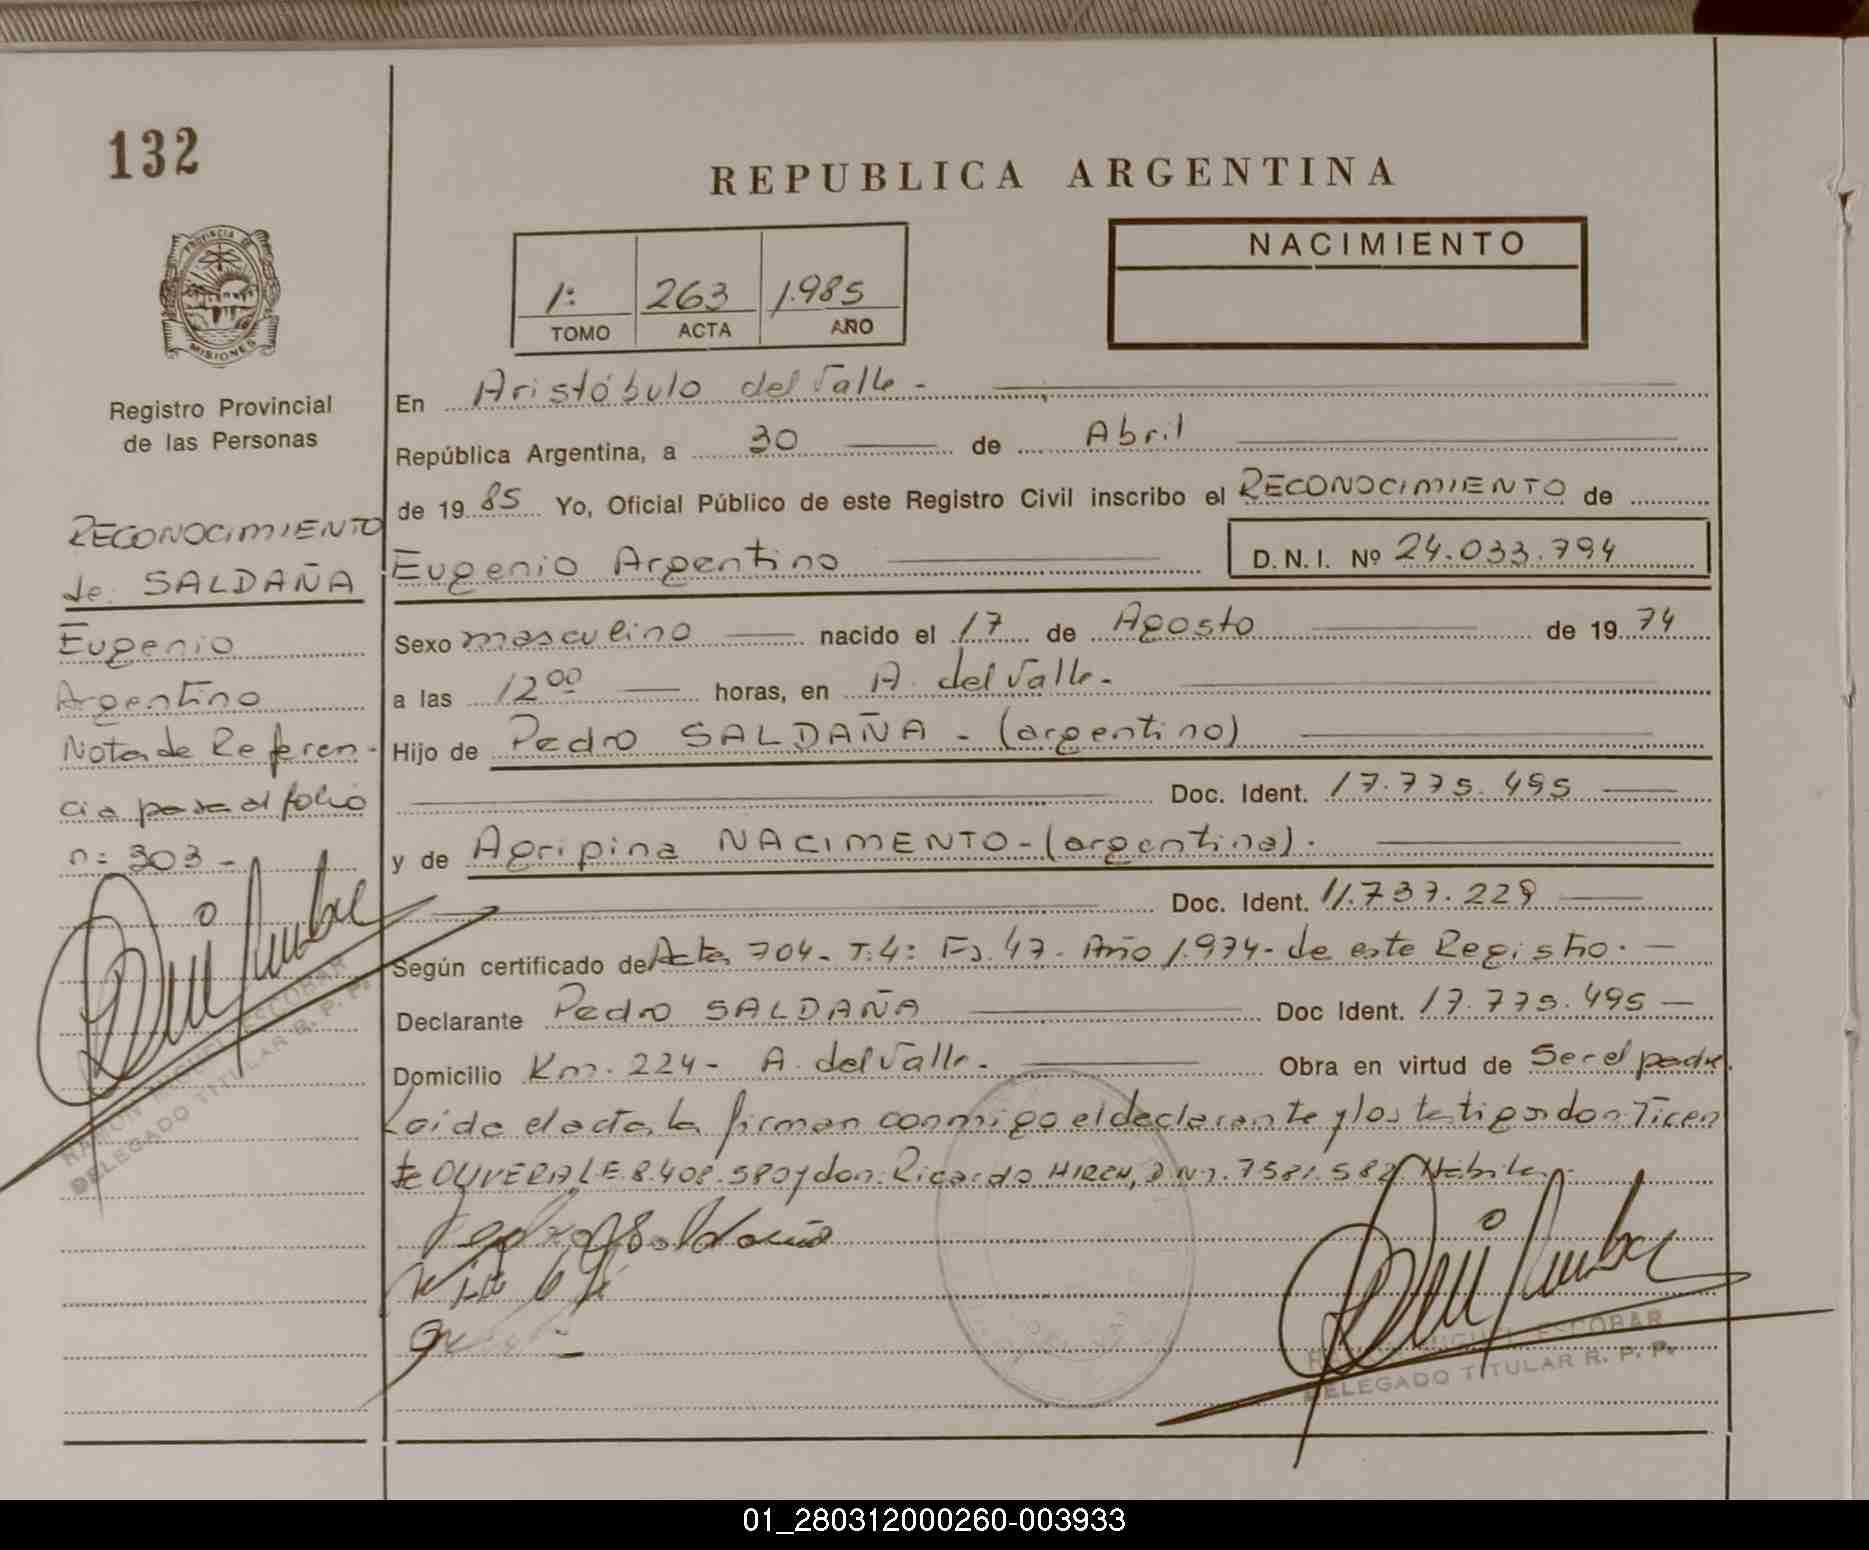 132
REPUBLICA ARGENTINA
PROVINCIA DE
MISIONES
Registro Provincial
de las Personas
1:
263
1.985
TOMO
ACTA
AÑO
NACIMIENTO
RECONOCIMIENTO
de: SALDAÑA
Eugenio
Argentino
Nota de Referen-
cia pasa al folio
n: 303-
RAMON MIGUEL ESCOBAR
DELEGADO TITULAR R. P. P.
En Aristóbulo del Valle-
República Argentina, a 30 de Abril
de 1985 Yo, Oficial Público de este Registro Civil inscribo el RECONOCIMIENTO de
Eugenio Argentino D.N.I. Nº 24.033.794
Sexo masculino nacido el 17 de Agosto de 1974
a las 12 00 horas, en A. del Valle-
Hijo de Pedro SALDAÑA - (argentino)
Doc. Ident. 17.775.495
y de Agripina NACIMENTO-(argentina).
Doc. Ident. 11.737.229
Según certificado de Acta 704- T.4: Fs. 47- Año 1.974- de este Registro.
Declarante Pedro SALDAÑA Doc Ident. 17.775.495
Domicilio Km. 224- A. del Valle- Obra en virtud de Ser el padre.
Leida el acta, la firman conmigo el declarante y los testigos don: Vicen
te OLIVERA, L.E. 8.408.580 y don: Ricardo HIRCH, D.N.I. 7.581.582 Hábiles
Pedro Saldaña
RAMON MIGUEL ESCOBAR
DELEGADO TITULAR R. P. P.
01_280312000260-003933